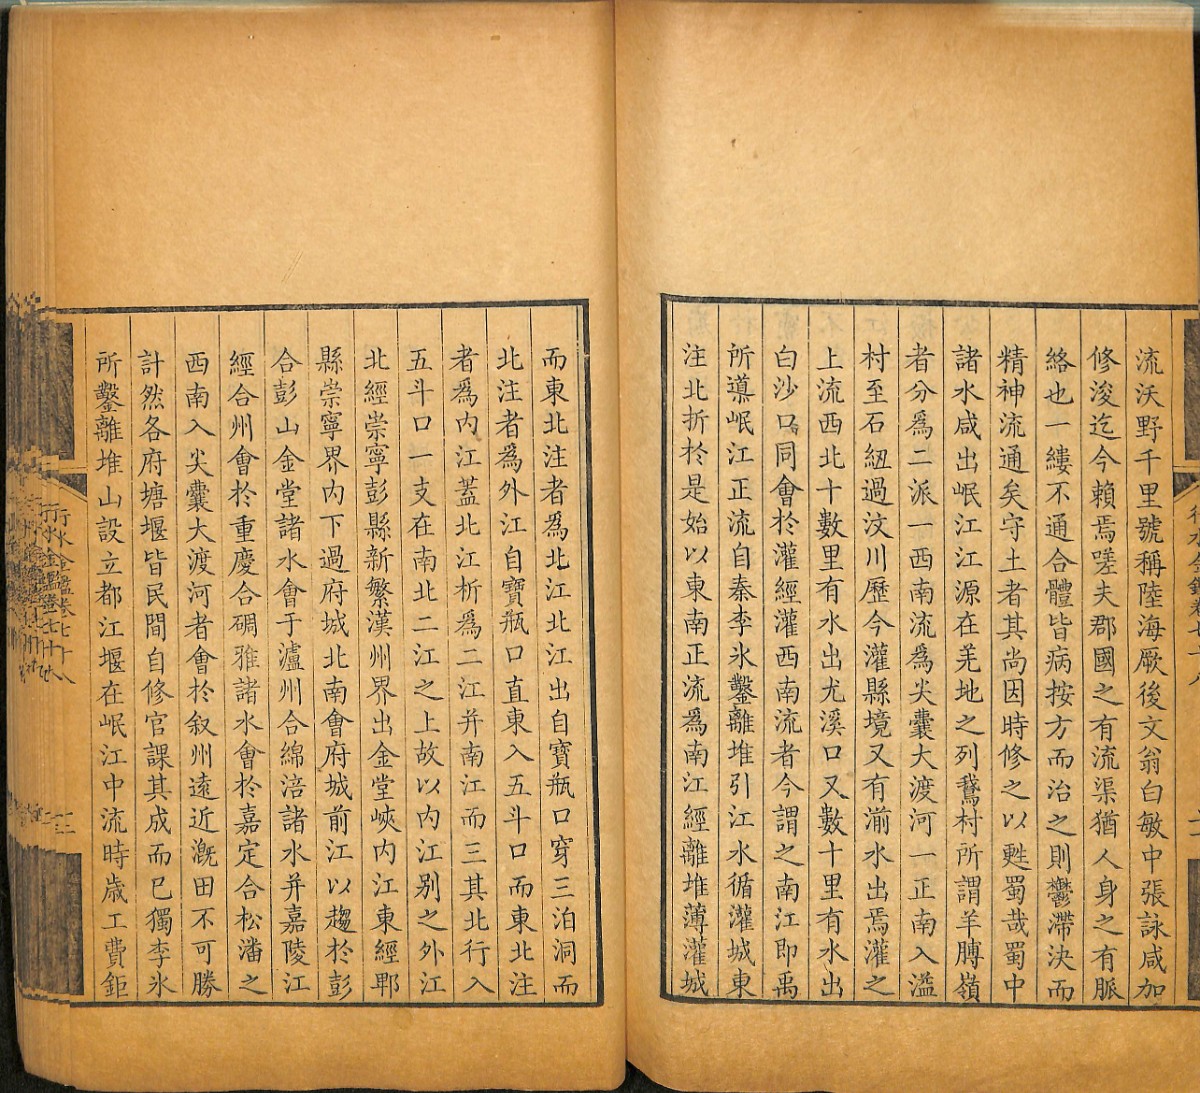 流沃野千里號稱陸海厥後文翁白敏中張詠咸加
修浚迄今賴焉嗟夫郡國之有流渠猶人身之有脈
絡也一縷不通合體皆病按方而治之則鬱滯決而
精神流通矣守土者其尚因時修之以甦蜀哉蜀中
諸水咸出岷江江源在羌地之列鵞村所謂羊膊嶺
者分爲二派一西南流爲尖囊大渡河一正南入溢
村至石紐過汶川歷今灌縣境又有湔水出焉灌之
上流西北十數里有水出尤溪口又數十里有水出
白沙口同會於灌經灌西南流者今謂之南江即禹
所導岷江正流自秦李氷鑿離堆引江水循灌城東
注北折於是始以東南正流爲南江經離堆薄灌城
而東北注者爲北江北江出自寶瓶口穿三泊洞而
北注者爲外江自寶瓶口直東入五斗口而東北注
者爲内江蓋北江析爲二江并南江而三其北行入
五斗口一支在南北二江之上故以内江别之外江
北經崇寧彭縣新繁漢州界出金堂峽内江東經郫
縣崇寧界内下過府城北南會府城前江以趨於彭
合彭山金堂諸水會于瀘州合綿涪諸水并嘉陵江
經合州會於重慶合碉雅諸水會於嘉定合松潘之
西南入尖囊大渡河者會於叙州遠近漑田不可勝
計然各府塘堰皆民間自修官課其成而已獨李氷
所鑿離堆山設立都江堰在岷江中流時歲工費鉅
行水金鑑卷七十八